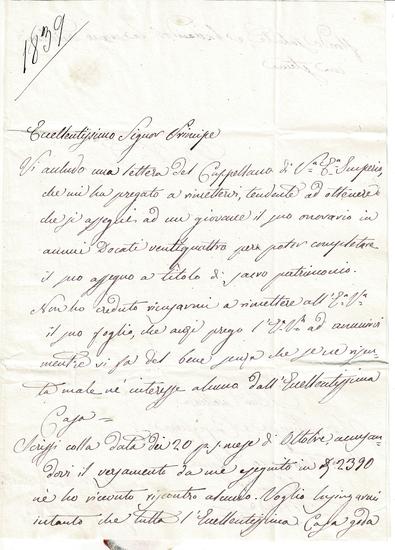 1839
Eccellentissimo Signor Principe
Vi accludo una lettera del Cappellano di V.ª E.ª Imperio,
che mi ha pregato a rimettervi, tendente ad ottenere
che si assegni ad un giovane il suo onorario in
annui Docati ventiquattro per poter completare
il suo assegno a titolo di sacro patrimonio.
Non ho creduto ricusarmi a rimettere all'E.ª V.ª
il suo foglio, che anzi prego l'E.ª V.ª ad annuirvi
mentre si fa del bene senza che se ne risen-
ta male nè interesse alcuno dall'Eccellentissima
Casa =
Scrissi colla data dei 20 p.s. mese di Ottobre accusan-
dovi il versamento da me eseguito in 2390
nè ho ricevuto riscontro alcuno. Voglio lusingarmi
intanto che tutta l'Eccellentissima Casa goda